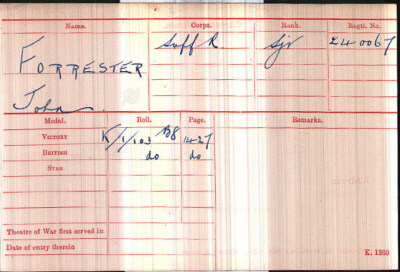 Name. Corps. Rank. Regtl. No.
FORRESTER Suff R. Sjt 240067
John.
Medal. Roll. Page. Remarks.
VICTORY K/1/103 B8 1427
BRITISH do do
STAR
Theatre of War first served in
Date of entry therein K. 1380